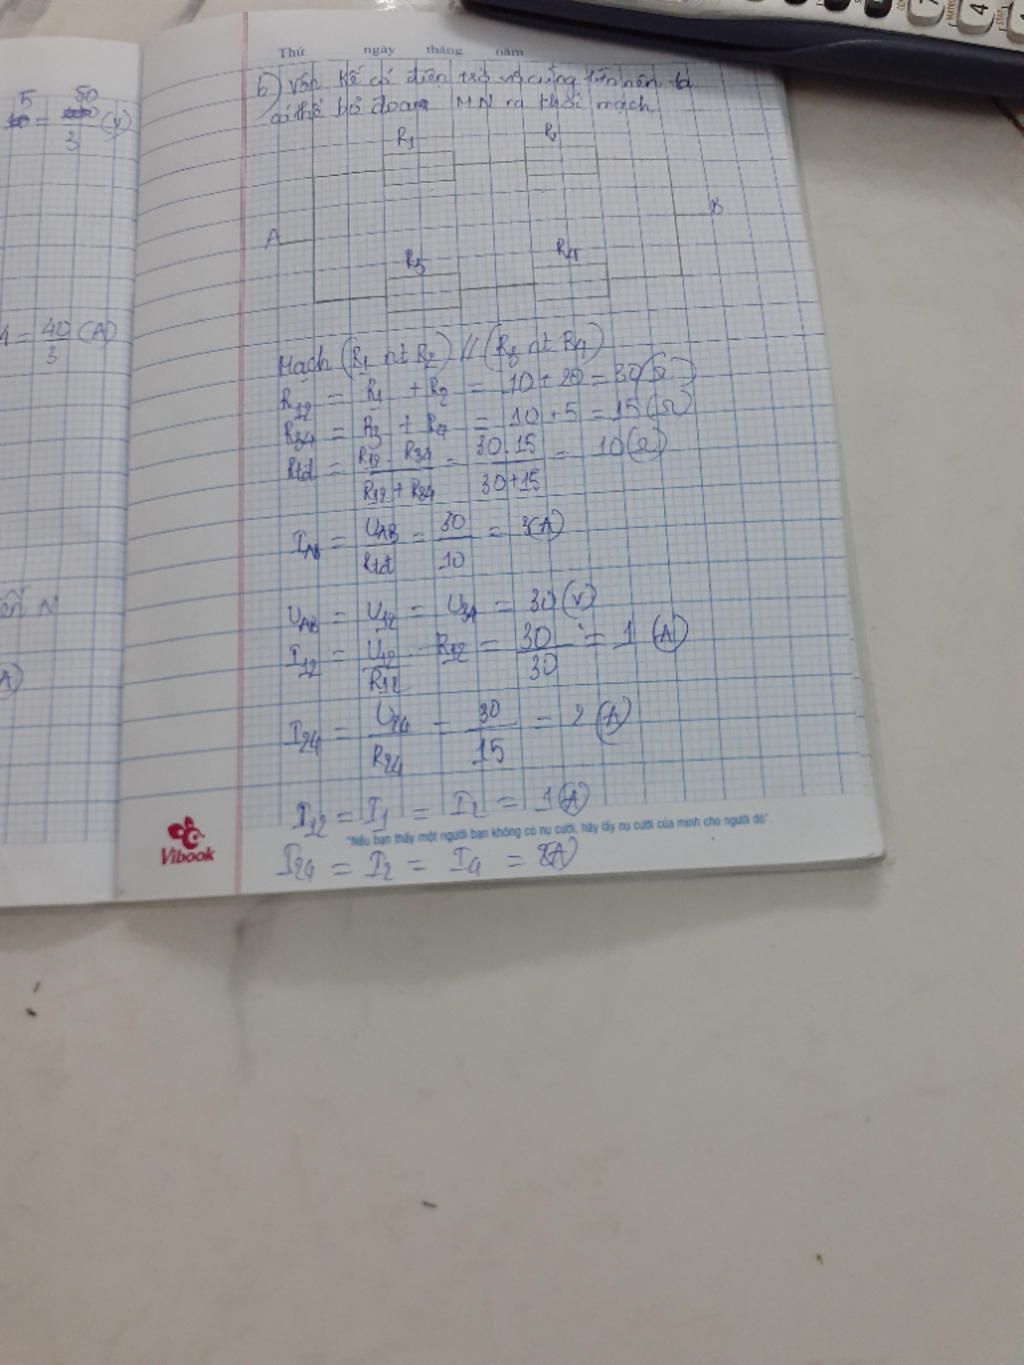 5 50
= 3 (V)
4 = 40/3 (A)
N
A)
Thứ ngày tháng năm
b) vôn kế có điện trở vô cùng lớn nên ta
có thể bỏ đoạn MN ra khỏi mạch
R1 R2
A B
R3 R4
Mạch (R1 nt R2) // (R3 nt R4)
R12 = R1 + R2 = 10 + 20 = 30(Ω)
R34 = R3 + R4 = 10 + 5 = 15(Ω)
Rtđ = R12 . R34 / R12 + R34 = 30.15 / 30+15 = 10(Ω)
IAB = UAB / Rtđ = 30 / 10 = 3(A)
UAB = U12 = U34 = 30(V)
I12 = U12 / R12 R12 = 30 / 30 = 1 (A)
I24 = U24 / R24 = 30 / 15 = 2 (A)
I12 = I1 = I2 = 1(A)
"Nếu bạn thấy một người bạn không có nụ cười, hãy lấy nụ cười của mình cho người đó"
Vibook
I24 = I2 = I4 = 2(A)